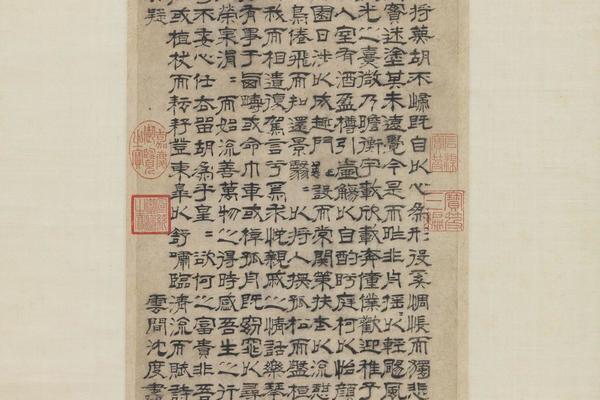 將蕪胡不歸既自以心為形役奚惆悵而獨悲
實迷塗其未遠覺今是而昨非舟搖以輕颺風
光之熹微乃瞻衡宇載欣載奔僮僕歡迎稚子
入室有酒盈樽引壺觴以自酌眄庭柯以怡顏
園日涉以成趣門雖設而常關策扶老以流憩
鳥倦飛而知還景翳〻以將入撫孤松而盤桓
我而相遺復駕言兮焉求悅親戚之情話樂琴
有事于西疇或命巾車或棹孤舟既窈窕以尋
榮泉涓〻而始流善萬物之得時感吾生之行
不委心任去留胡為乎皇〻欲何之富貴非吾
或植杖而耘耔登東皋以舒嘯臨清流而賦詩
疑
雲間沈度書